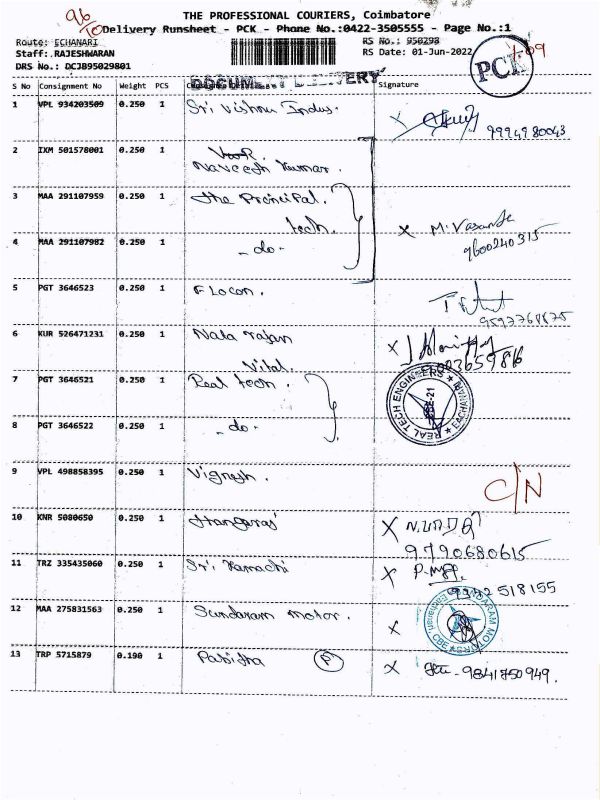 96
THE PROFESSIONAL COURIERS, Coimbatore
Delivery Runsheet - PCK - Phone No.:0422-3505555 - Page No.:1
Route: ECHANARI
RS No.: 950298
Staff:.RAJESHWARAN
RS Date: 01-Jun-2022
DRS No.: DCJB95029801
PCK
DOCUMENT DELIVERY
S No Consignment No Weight PCS Signature
1 VPL 934203509 0.250 1 Sri Vishnu Indus.
9994980043
2 IXM 501578001 0.250 1 Naveesh Kumar.
3 MAA 291107959 0.250 1 The Principal.
tech.
4 MAA 291107982 0.250 1 - do - x M. Vasantha
9600240315
5 PGT 3646523 0.250 1 Flocon.
6 KUR 526471231 0.250 1 Nata rajan x
Vital.
7 PGT 3646521 0.250 1 Real tech.
REAL TECH ENGINEERS ★ EACHANARI ★
CBE-21
8 PGT 3646522 0.250 1 - do -
9 VPL 498858395 0.250 1 Vignesh. C/N
10 KNR 5080650 0.250 1 Thangaraj x
9790680615
11 TRZ 335435060 0.250 1 Sri Kamachi x
518155
12 MAA 275831563 0.250 1 Sundaram motor. x
13 TRP 5715879 0.190 1 Pabitha P x - 9841750949.